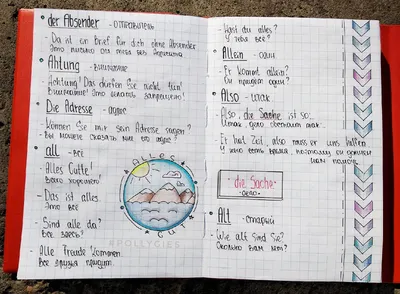 der Absender - отправитель
- Da ist ein Brief für dich ohne Absender
Это письмо для тебя без адресанта
Ahtung - внимание
- Achtung! Das dürfen Sie nicht tun!
Внимание! Это делать запрещено!
Die Adresse - адрес
- Können Sie mir sein Adresse sagen?
- Вы можете сказать мне его адрес?
all - все
- Alles Gutte!
Всего хорошего!
- Das ist alles
Это все
- Sind alle da?
Все здесь?
- Alle Freude kommen.
Все друзья придут.
ALLES
Gut
@POLLYGIES
- Hast du alles?
У тебя все?
Allein - один
- Er kommt allein?
Он придет один?
Also - итак
- Also, die Sache ist so...
Итак, дело обстоит так..
- Er hat Zeit, also muss er uns helfen
У него есть время, поэтому он должен
нам помочь
die Sache
- дело -
Alt - старый
- Wie alt sind Sie?
Сколько вам лет?